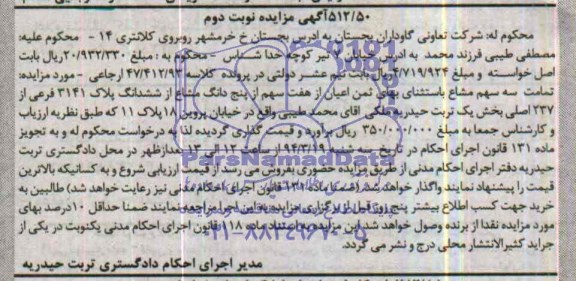 ۵۱۲/۵۰آگهی مزایده نوبت دوم
محکوم له: شرکت تعاونی گاوداران بجستان به ادرس بجستان خ خرمشهر روبروی کلانتری ۱۴ - محکوم علیه:
مصطفی طیبی فرزند محمد به ادرس خیابان تیر کوچه خدا شناس - محکوم به : مبلغ ۲۰/۹۳۲/۳۳۰ریال بابت
اصل خواسته و مبلغ ۲/۷۱۹/۹۲۴ریال بابت نیم عشر دولتی در پرونده کلاسه ۴۷/۴۱۲/۹۳ ارجاعی - مورد مزایده:
تمامت سه سهم مشاع باستثنای بهای ثمن اعیان از هفت سهم از پنج دانگ مشاع از ششدانگ پلاک ۳۱۴۱ فرعی از
۲۳۷ اصلی بخش یک تربت حیدریه ملکی اقای محمد طیبی واقع در خیابان پروین ۱۸پلاک ۱۱ که طبق نظریه ارزیاب
و کارشناس جمعا به مبلغ ۳۵۰/۰۰۰/۰۰۰ ریال برآورد و قیمت گذاری گردیده لذا به درخواست محکوم له و به تجویز
ماده ۱۳۱ قانون اجرای احکام در تاریخ سه شنبه ۹۴/۳/۱۹ از ساعت ۱۲ الی ۱۳ بعدازظهر در محل دادگستری تربت
حیدریه دفتر اجرای احکام مدنی از طریق مزایده حضوری بفروش می رسد از قیمت ارزیابی شروع و به کسانیکه بالاترین
قیمت را پیشنهاد نمایند واگذار خواهد شد (ضمنا ماده ۱۳۲ قانون اجرای احکام مدنی نیز رعایت خواهد شد) طالبین به
خرید جهت کسب اطلاع بیشتر پنج روز قبل از برگزاری مزایده به این اجرا مراجعه نمایند ضمنا حداقل ۱۰درصد بهای
مورد مزایده نقدا از برنده وصول خواهد شد این مزایده به استناد ماده ۱۱۸ قانون اجرای احکام مدنی یکنوبت در یکی از
جراید کثیرالانتشار محلی درج و نشر می گردد.
مدیر اجرای احکام دادگستری تربت حیدریه
ParsNamadData
۰۲۱-۸۸۳۴۹۶۷۰-۵